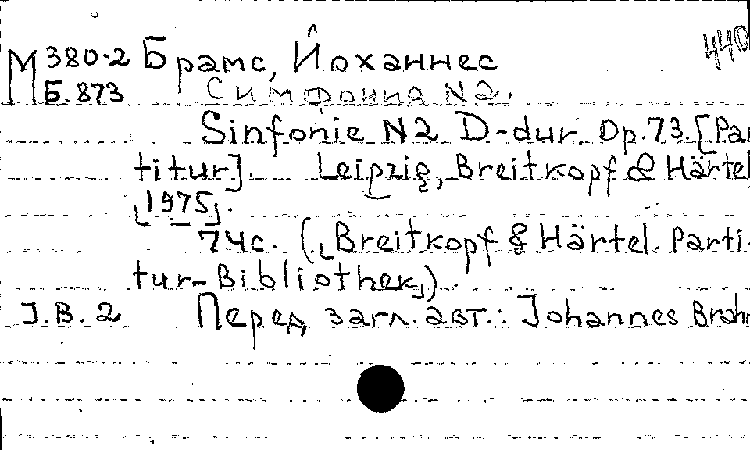 440
М 380-2 Брамс, Йоханнес
Б. 873 Симфония N2.
Sinfonie N2 D-dur Op. 73. [Par
titur]. Leipzig, Breitkopf & Härtel
[1975].
74 с. ([Breitkopf & Härtel. Parti-
tur-Bibliothek])
J.B. 2 Перед загл. авт.: Johannes Brahm